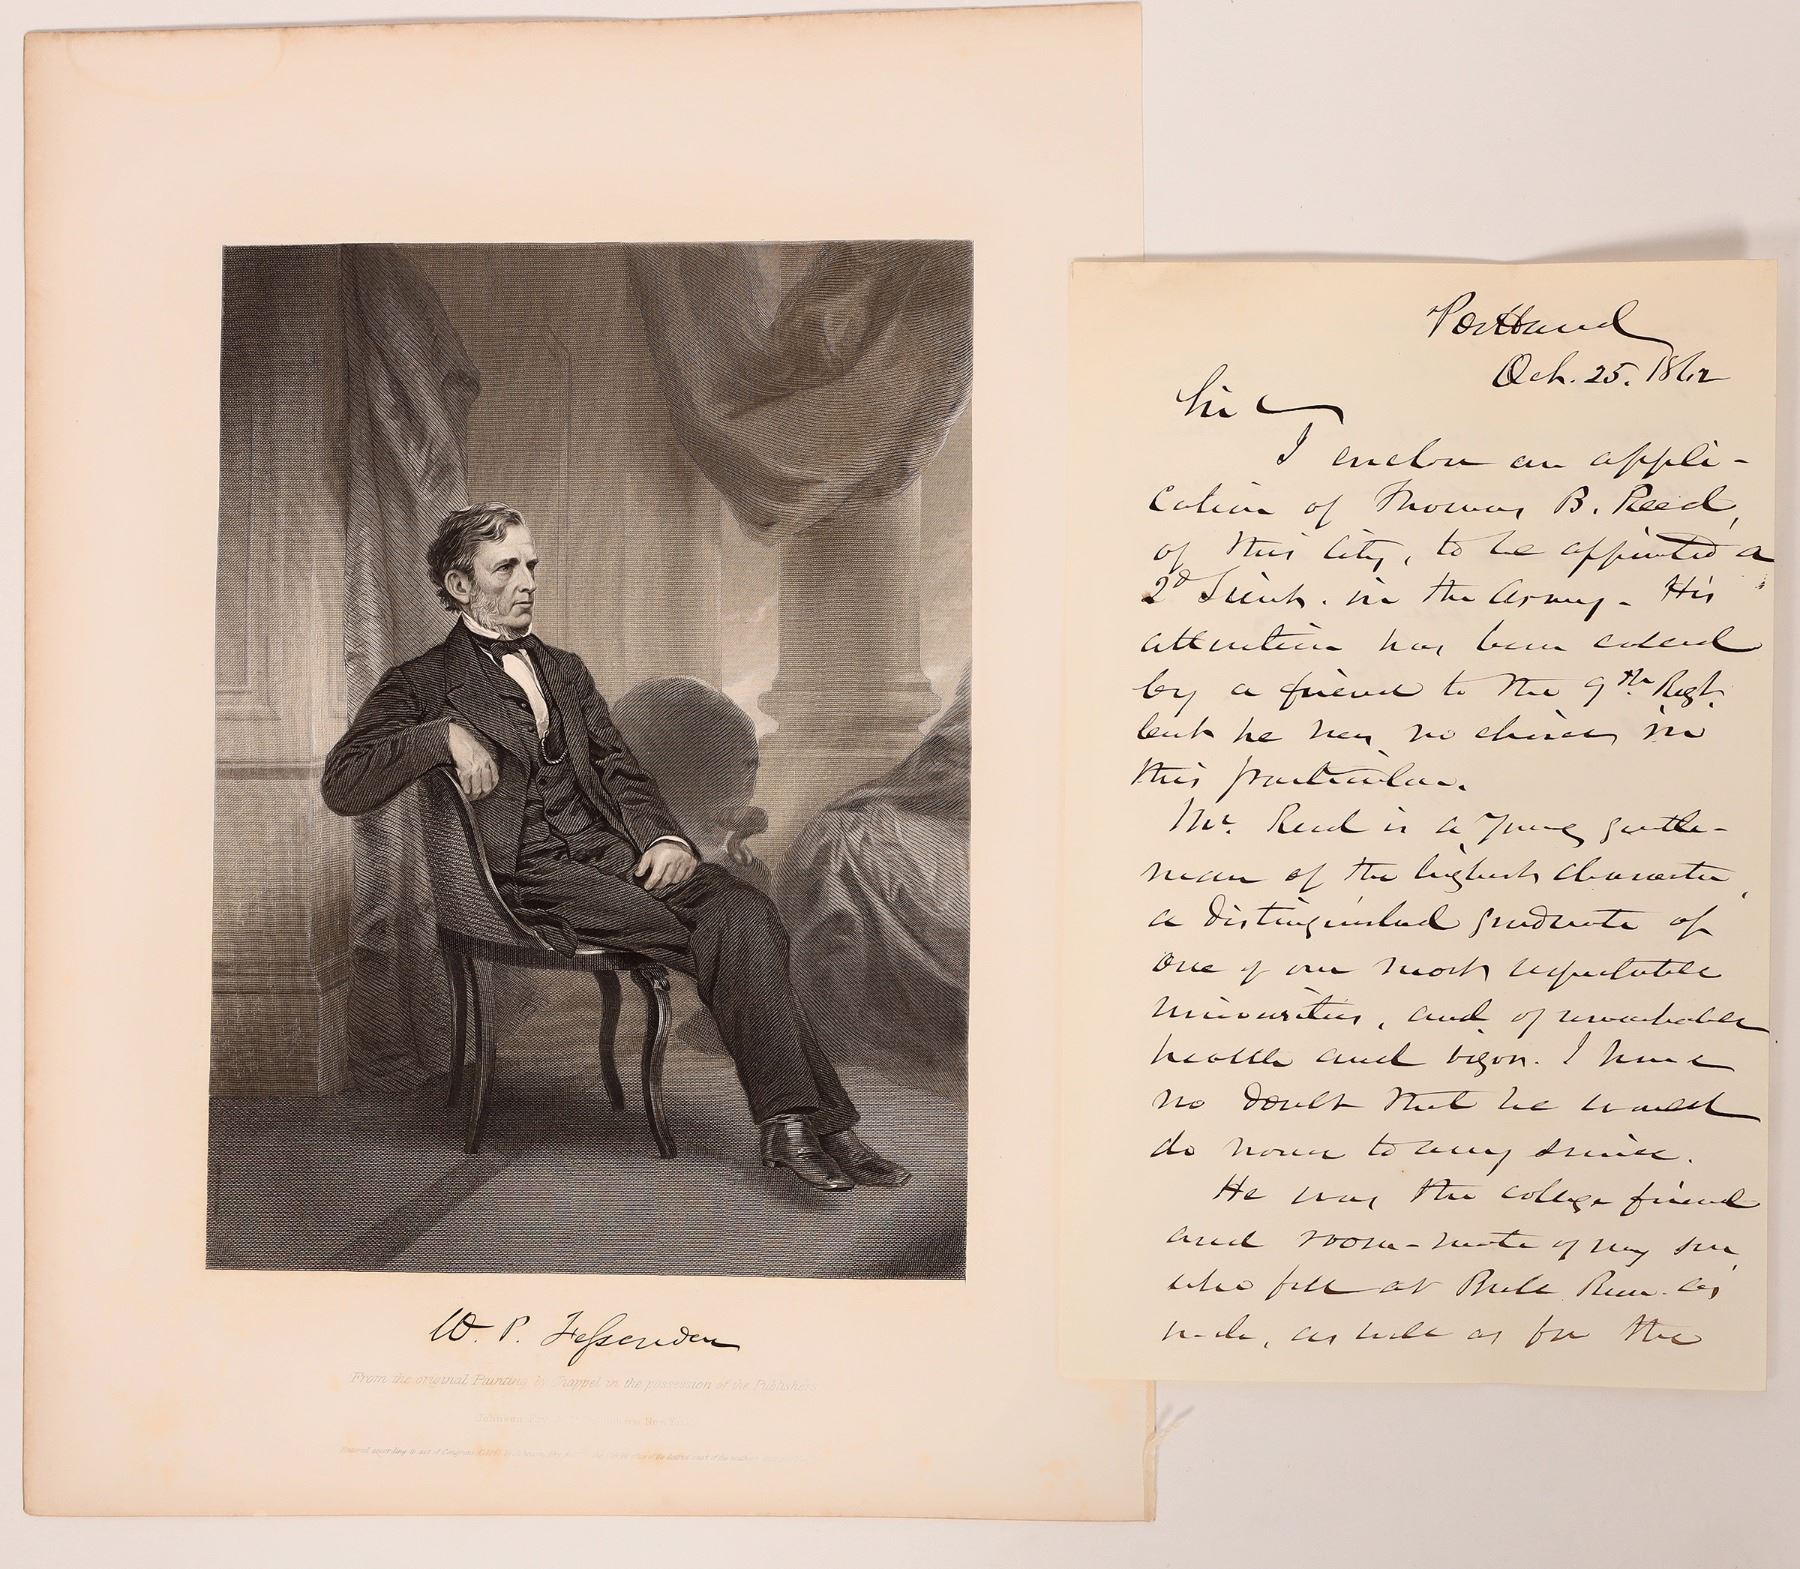 W. P. Fessenden
From the original Painting by Chappel in the possession of the Publishers
Johnson, Fry & Co. Publishers New York
Entered according to act of Congress
Portland
Oct. 25. 1862
Sir
I enclose an appli-
cation of Thomas B. Reed,
of this city, to be appointed a
2d Lieut. in the Army. His
attention has been called
by a friend to the 9th Regt.
but he has no choice in
this particular.
Mr. Reed is a young gentle-
man of the highest character,
a distinguished graduate of
one of our most respectable
universities, and of remarkable
health and vigor. I have
no doubt that he would
do honor to any service.
He was the college friend
and room-mate of my son,
who fell at Bull Run. as
, as well as for the